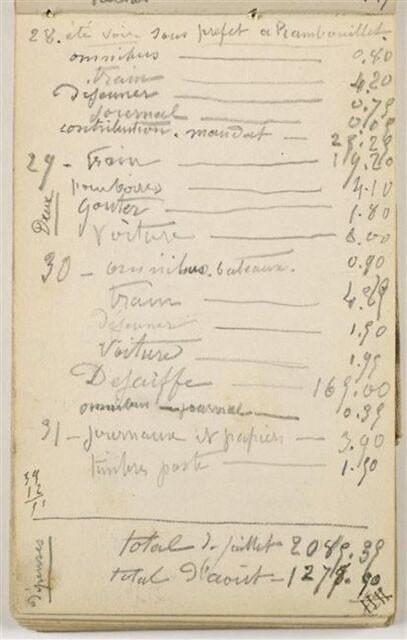 28. été voir sous prefet a Rambouillet.
omnibus — 0.80
train — 4.20
Dejeuner — 0.75
Journal — 0.05
contribution. mandat — 29.29
29 - train — 14.20
pourboires — 4.10
Gouter — 1.80
Deux
Voiture — 8.00
30 - omnibus. bateaux. 0.90
train — 4.85
dejeuner — 1.90
Voiture — 1.95
Desaiffe — 169.00
omnibus — journal — 0.35
31 - journaux et papiers — 3.90
timbres poste — 1.50
39
12
51
dépenses
total de juillet - 2089.39
total d'aout - 1278.90